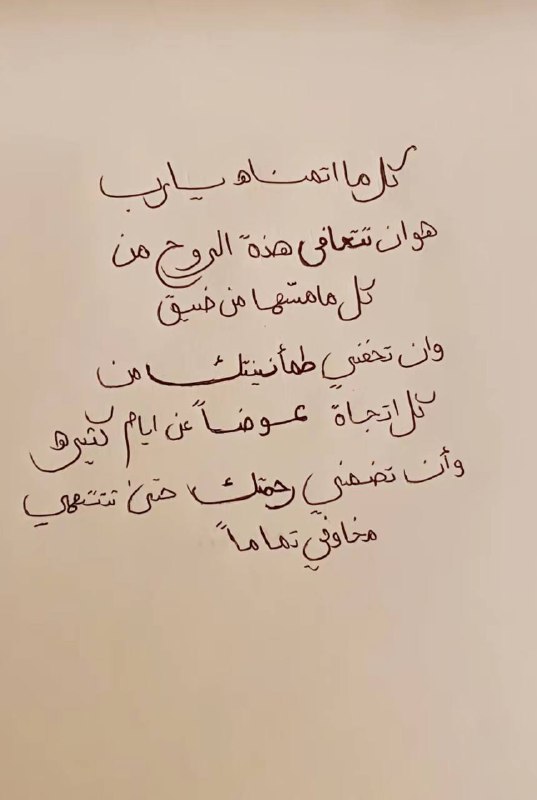 كل ما اتمناه يارب
هو ان تتعافى هذة الروح من
كل ما مسّها من ضيق
وان تحفني طمأنينتك من
كل اتجاة عوضاً عن ايام كثيره
وأن تضمني رحمتك حتى تنتهي
مخاوفي تماماً